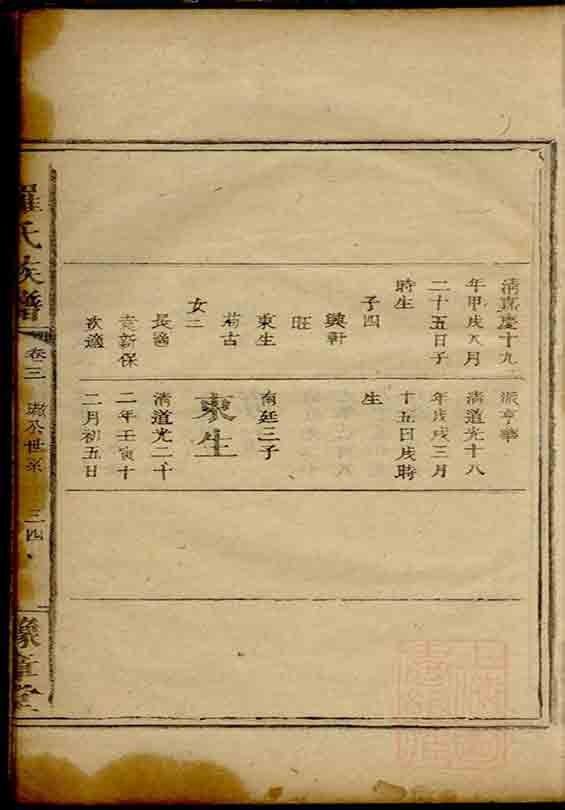 清嘉慶十九
年甲戌八月
二十五日子
時生
子四
興軒
旺
東生
蒂古
女二
長適
袁新保
次適
派亨華
清道光十八
年戊戌三月
十五日戌時
生
南廷三子
東生
清道光二十
二年壬寅十
二月初五日
羅氏族譜
卷三
公世系
三四
豫章堂